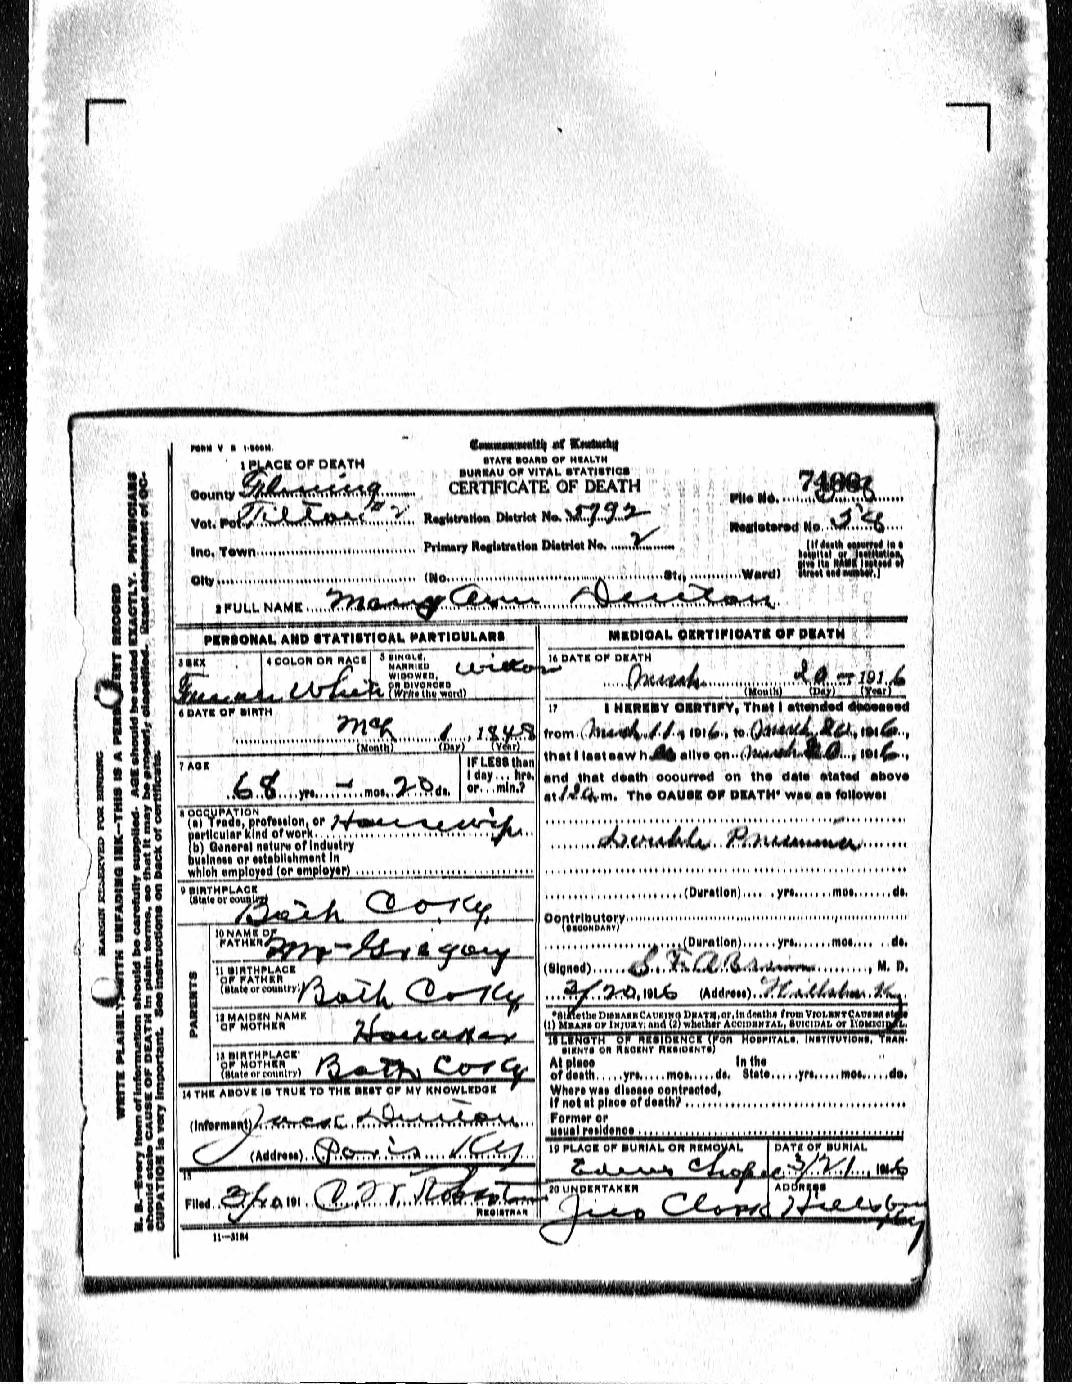 FORM V S 1-500M.
Commonwealth of Kentucky
STATE BOARD OF HEALTH
BUREAU OF VITAL STATISTICS
CERTIFICATE OF DEATH
1 PLACE OF DEATH
County Fleming
Vot. Pct. Tilton #2
Inc. Town
City
Registration District No. 5792
Primary Registration District No. 2
(No. St., Ward)
File No.
Registered No. 58
[If death occurred in a
hospital or institution,
give its NAME instead of
street and number.]
2 FULL NAME Mary Ann Denton
PERSONAL AND STATISTICAL PARTICULARS
3 SEX
Female
4 COLOR OR RACE
White
5 SINGLE,
MARRIED
WIDOWED,
OR DIVORCED
(Write the word)
Widow
6 DATE OF BIRTH
Mch 1, 1848
(Month) (Day) (Year)
7 AGE
68 yrs. - mos. 20 ds.
IF LESS than
1 day... hrs.
or... min.?
8 OCCUPATION
(a) Trade, profession, or
particular kind of work Housewife
(b) General nature of industry
business or establishment in
which employed (or employer)
9 BIRTHPLACE
(State or country)
Bath Co Ky
PARENTS
10 NAME OF
FATHER Mr - Gregory
11 BIRTHPLACE
OF FATHER
(State or country) Bath Co Ky
12 MAIDEN NAME
OF MOTHER Honaker
13 BIRTHPLACE
OF MOTHER
(State or country) Bath Co Ky
14 THE ABOVE IS TRUE TO THE BEST OF MY KNOWLEDGE
(Informant) Jack Denton
(Address) Paris Ky
15
Filed 3/20 191
REGISTRAR
11-3184
MEDICAL CERTIFICATE OF DEATH
16 DATE OF DEATH
March 20 - 1916
(Month) (Day) (Year)
17 I HEREBY CERTIFY, That I attended deceased
from March 11, 1916, to March 20, 1916,
that I last saw her alive on March 20, 1916,
and that death occurred on the date stated above
at m. The CAUSE OF DEATH* was as follows:
Double Pneumonia
(Duration) yrs. mos. ds.
Contributory
(SECONDARY)
(Duration) yrs. mos. ds.
(Signed) M. D.
3/20, 1916 (Address) Hillsboro Ky
*State the DISEASE CAUSING DEATH, or, in deaths from VIOLENT CAUSES state
(1) MEANS OF INJURY; and (2) whether ACCIDENTAL, SUICIDAL or HOMICIDAL.
18 LENGTH OF RESIDENCE (FOR HOSPITALS, INSTITUTIONS, TRAN-
SIENTS OR RECENT RESIDENTS)
At place In the
of death yrs. mos. ds. State yrs. mos. ds.
Where was disease contracted,
if not at place of death?
Former or
usual residence
19 PLACE OF BURIAL OR REMOVAL
Edens Chapel
DATE OF BURIAL
3/21, 1916
20 UNDERTAKER
Clark
ADDRESS
Hillsboro
Ky
MARGIN RESERVED FOR BINDING
WRITE PLAINLY, WITH UNFADING INK—THIS IS A PERMANENT RECORD
N. B.—Every item of information should be carefully supplied. AGE should be stated EXACTLY. PHYSICIANS
should state CAUSE OF DEATH in plain terms, so that it may be properly classified. Exact statement of OC-
CUPATION is very important. See instructions on back of certificate.